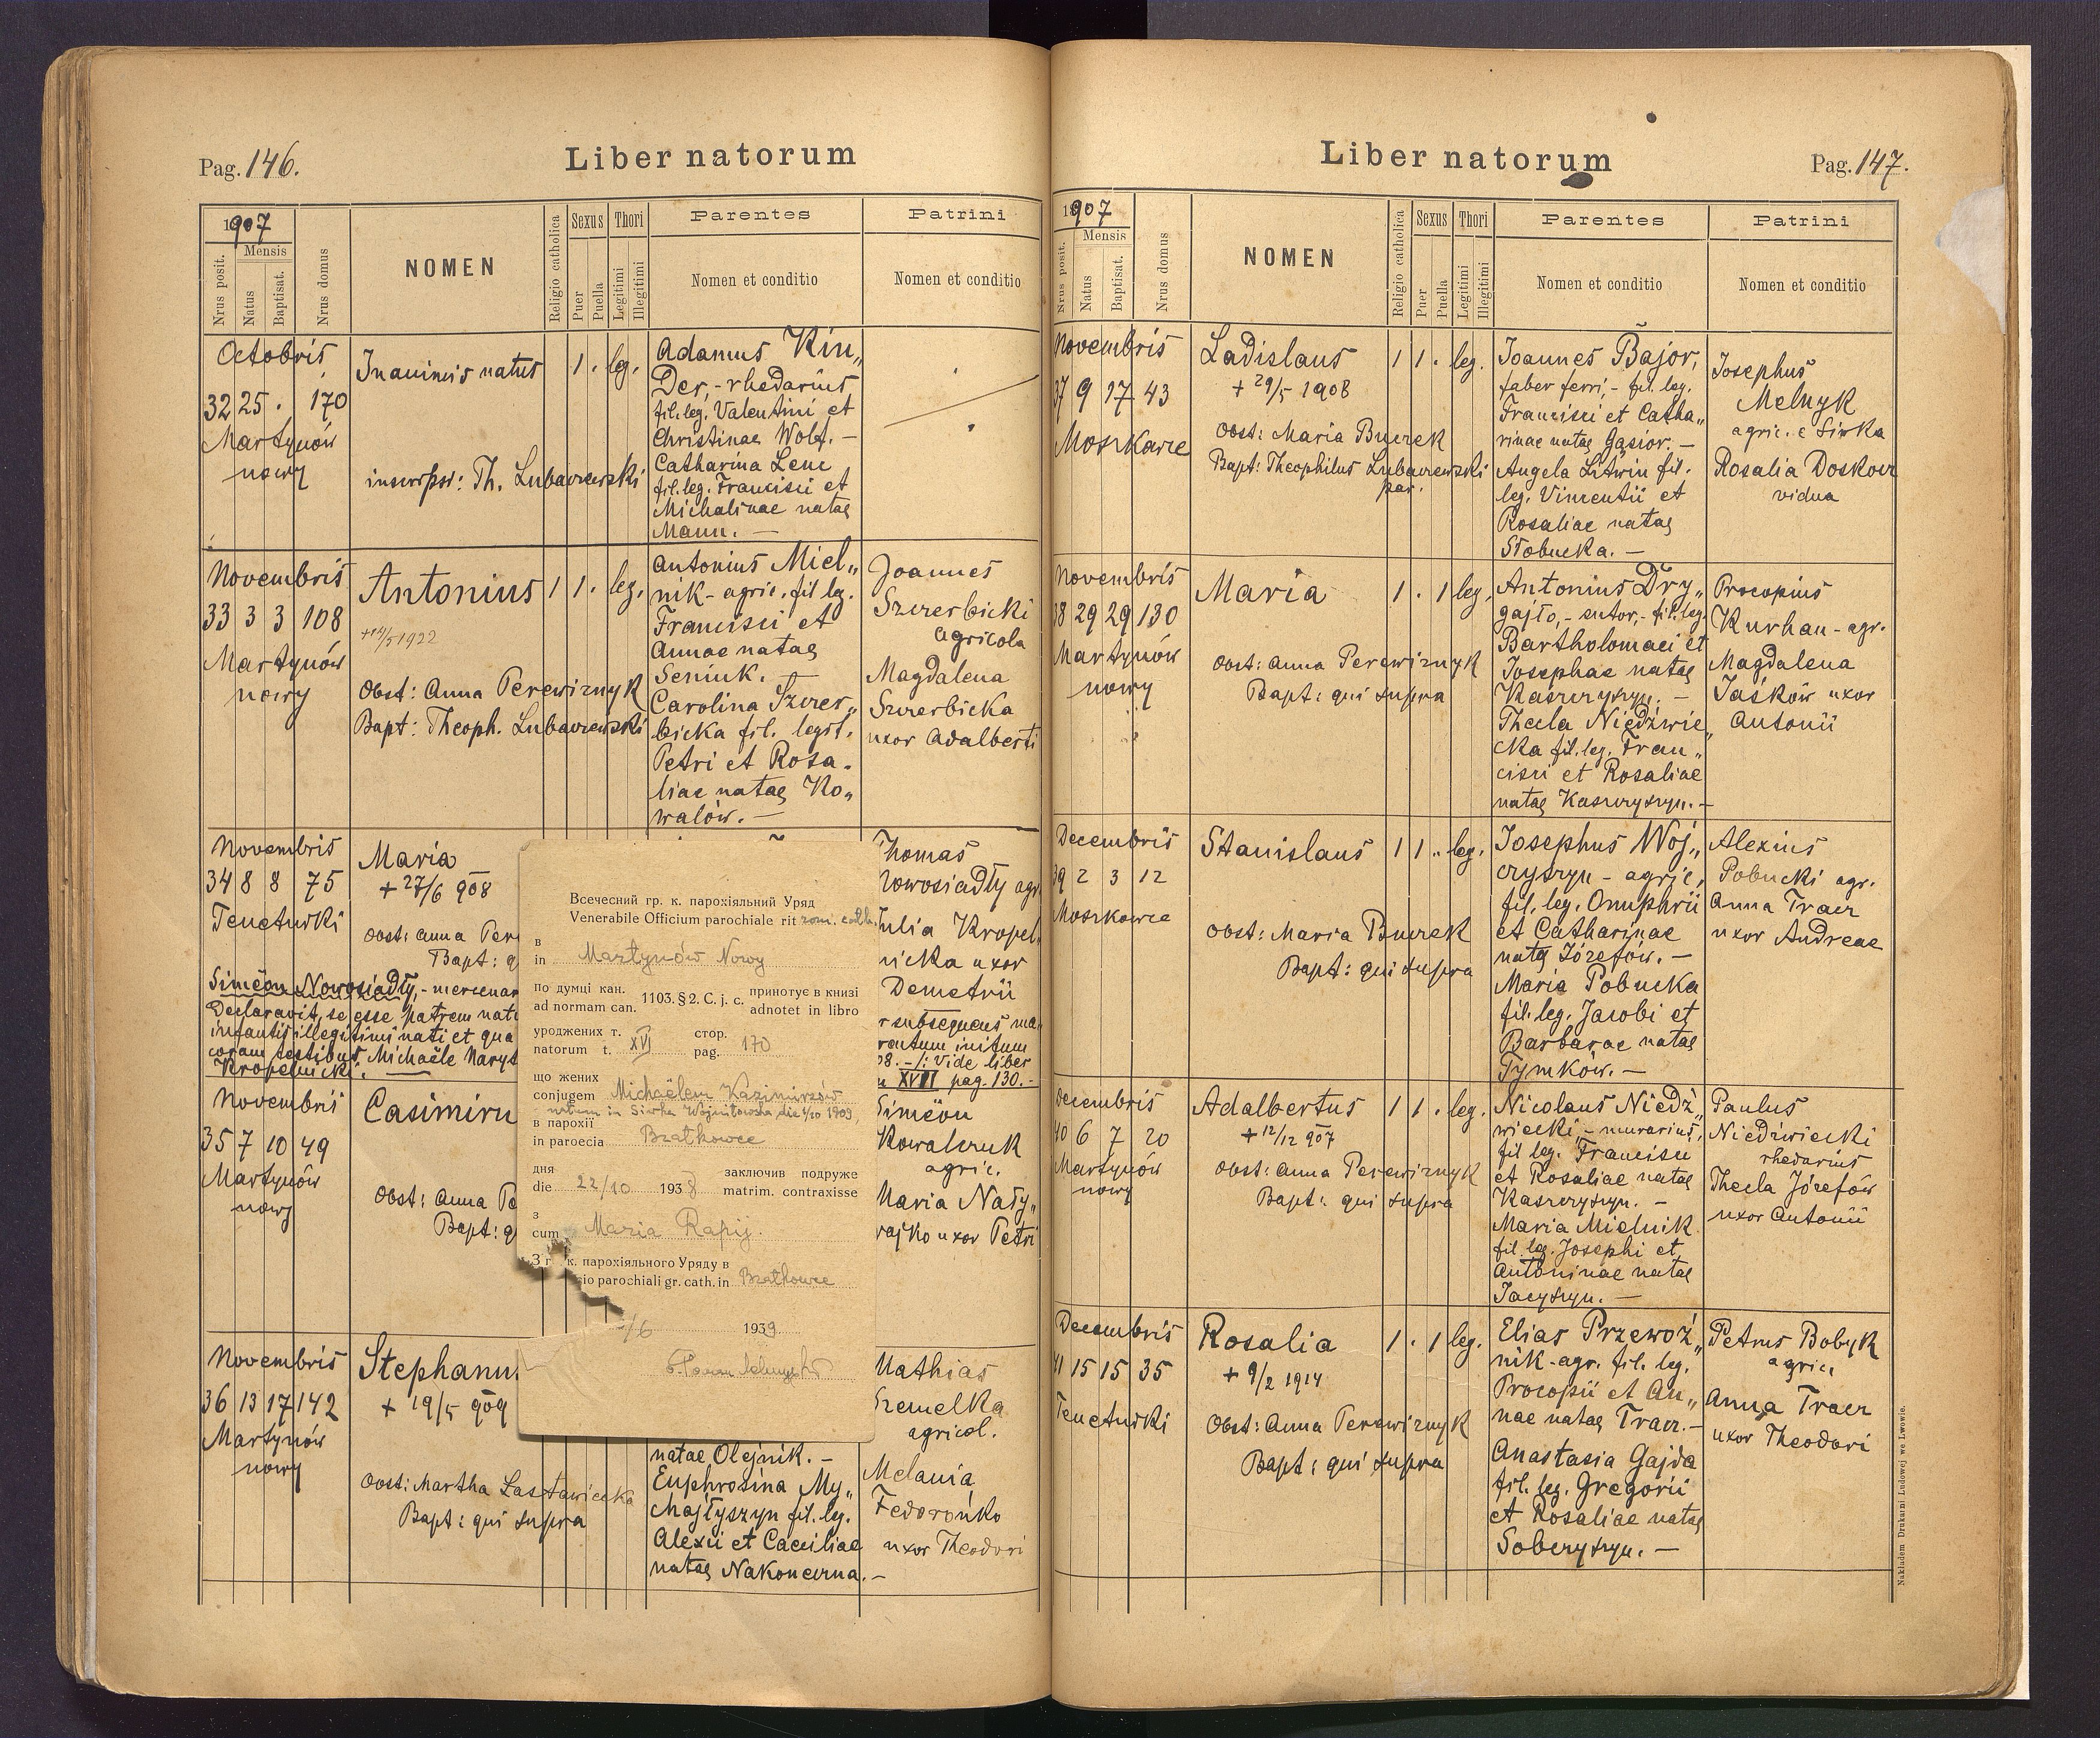 Pag. 146.
Liber natorum
1907
Mensis
Nrus posit.
Natus
Baptisat.
Nrus domus
NOMEN
Religio catholica
Sexus
Puer
Puella
Thori
Legitimi
Illegitimi
Parentes
Nomen et conditio
Patrini
Nomen et conditio
Octobris
32 25 . 170
Martynów
nowy
natus
1 . leg.
Adamus Kin„
der,- rhedarius
fil. leg. Valentini et
Christinae Wolf. -
Catharina Lenc
fil. leg. Francisci et
Michalinae natae
Mann. -
Novembris
33 3 3 108
Martynów
nowy
Antonius
1 1 . leg.
Obst: Anna Perewiznyk
Bapt: Theoph. Lubaczewski
Antonius Miel„
nik - agric. fil leg.
Francisci et
Annae natae
Seniuk.
Carolina Szczer„
bicka fil. legit.
Petri et Rosa-
liae natae Ko„
walów. -
Joannes
Szczerbicki
agricola
Magdalena
Szczerbicka
uxor Adalberti
Novembris
34 8 8 75
Tenetnikí
Maria
+ 27/6 908
Obst: Anna Per
Bapt: q
Simeon Nowosiadły,- mercenar
Declaravit, se esse patrem nat
infantis illegitimi nati et qua
coram testibus, Michaële
Kropelnicki.
Thomas
Nowosiadły agr.
Julia Kropel„
nicka uxor
Demetrii
r subsequens ma„
initum
08. - /: Vide liber
XVII pag. 130. -
Novembris
35 7 10 49
Martynów
nowy
Casimiru
Obst: Anna Pe
Bapt: q
Simeon
Kowalczuk
agric.
Maria Nały„
rajko uxor Petri
Novembris
36 13 17 142
Martynów
nowy
Stephanu
+ 19/5 909
Obst: Martha Lastawiecka
Bapt: qui supra
natae Olejnik. -
Euphrosina My„
chajłyszyn fil. leg.
Alexii et Caeciliae
natae Nakoneczna. -
Mathias
Szemelka
agricol.
Melania
Fedorońko
uxor Theodori
Всечесний гр. к. парохіяльний Уряд
Venerabile Officium parochiale rit rom. cath.
в
in Martynów Nowy
по думці кан. 1103. § 2. C. j. c. принотує в книзі
ad normam can. adnotet in libro
уроджених т. XVI стор. 170
natorum t. pag.
що жених
conjugem Michaëlem Kazimirzów
natum in Siwka Wojnitowska die 4/10 1909,
в парохії
in paroecia Bratkowce
дня заключив подруже
die 22/10 1938 matrim. contraxisse
з
cum Maria Rapij.
З г к. парохіяльного Уряду в
cio parochiali gr. cath. in Bratkowce
/6 1939
Liber natorum
Pag. 147.
1907
Mensis
Nrus posit.
Natus
Baptisat.
Nrus domus
NOMEN
Religio catholica
Sexus
Puer
Puella
Thori
Legitimi
Illegitimi
Parentes
Nomen et conditio
Patrini
Nomen et conditio
Novembris
37 9 17 43
Moszkowce
Ladislaus
+ 29/5 1908
1 1 . leg.
Obst: Maria Buczek
Bapt: Theophilus Lubaczewski
par.
Joannes Bajor,
faber ferri,- fil. leg.
Francisci et Catha„
rinae natae Gąsior. -
Angela Litwin fil.
leg. Vincentii et
Rosaliae natae
Słobucka. -
Josephus
Melnyk
agric. e Siwka
Rosalia Doskocz
vidua
Novembris
38 29 29 130
Martynów
nowy
Maria
1 . 1 leg.
Obst: Anna Perewiznyk
Bapt: qui supra
Antonius Dry„
gajło,- sutor,- fil. leg.
Bartholomaei et
Josephae natae
Kaszczyszyn. -
Thecla Niedźwie„
cka fil. leg. Fran„
cisci et Rosaliae
natae Kaszczyszyn. -
Procopius
Kurhan - agr.
Magdalena
Jaśków uxor
Antonii
Decembris
39 2 3 12
Moszkowce
Stanislaus
1 1 . leg.
Obst: Maria Buczek
Bapt: qui supra
Josephus Woj„
czyszyn - agric.
fil. leg. Onuphrii
et Catharinae
natae Józefów. -
Maria Pobucka
fil. leg. Jacobi et
Barbarae natae
Tymków. -
Alexius
Pobucki agr.
Anna Tracz
uxor Andreae
Decembris
40 6 7 20
Martynów
nowy
Adalbertus
+ 12/12 907
1 1 . leg.
Obst: Anna Perewiznyk
Bapt: qui supra
Nicolaus Niedź„
wiecki,- murarius,
fil leg. Francisci
et Rosaliae natae
Kaszczyszyn. -
Maria Mielnik
fil. leg. Josephi et
Antoninae natae
Jacyszyn. -
Paulus
Niedźwiecki
rhedarius
Thecla Józefów
uxor Antonii
Decembris
41 15 15 35
Tenetnikí
Rosalia
+ 9/2 1914
1 . 1 leg.
Obst: Anna Perewiznyk
Bapt: qui supra
Elias Przewoź„
nik - agr. fil. leg.
Procopii et An„
nae natae Tracz. -
Anastasia Gajda
fil. leg. Gregorii
et Rosaliae natae
Soberyszyn. -
Petrus Bobyk
agric.
Anna Tracz
uxor Theodori
Nakładem Drukarni Ludowej we Lwowie.